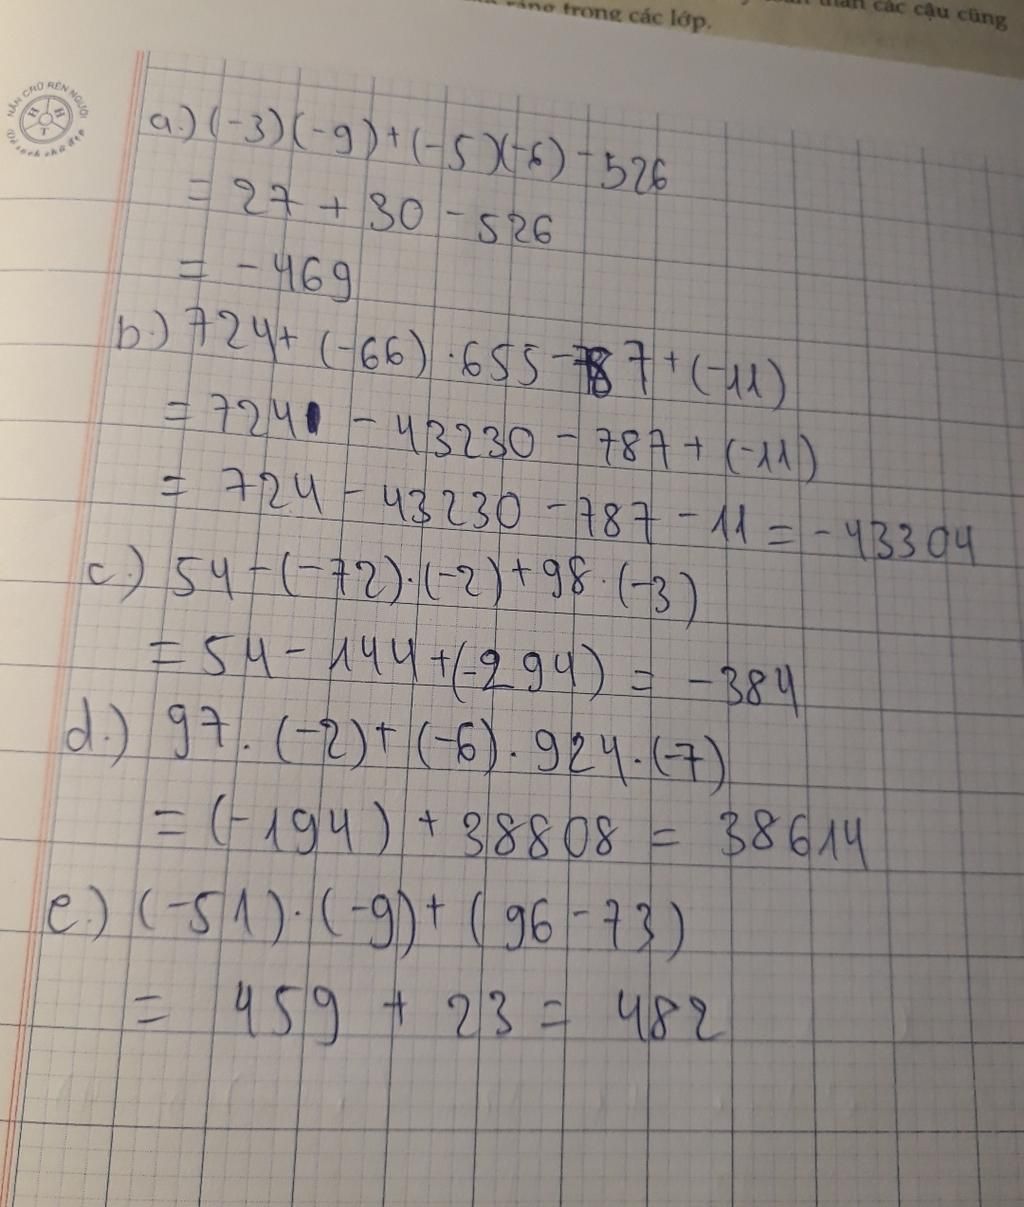 thân các cậu cũng
trong các lớp.
NẮN CHỮ RÈN NGƯỜI
H H T
a.) (-3)(-9)+(-5)(-6)-526
= 27 + 30 - 526
= -469
b.) 724+ (-66) . 655 - 787 + (-11)
= 724 - 43230 - 787 + (-11)
= 724 - 43230 - 787 - 11 = - 43304
c.) 54 - (-72).(-2) + 98 . (-3)
= 54 - 144 + (-294) = -384
d.) 97 . (-2) + (-6) . 924 . (-7)
= (-194) + 38808 = 38614
e.) (-51) . (-9) + (96 - 73)
= 459 + 23 = 482